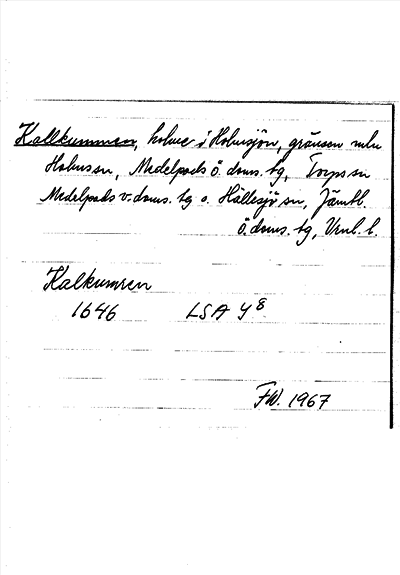 Kallkummen, holme i Holmsjön, gränsen mln
Holms sn, Medelpads ö. doms. tg, Torps sn
Medelpads v. doms. tg o. Hällesjö sn, Jämtl.
ö. doms. tg, Vnl. l.
Kalkumren
1646 LSA Y8
FW. 1967